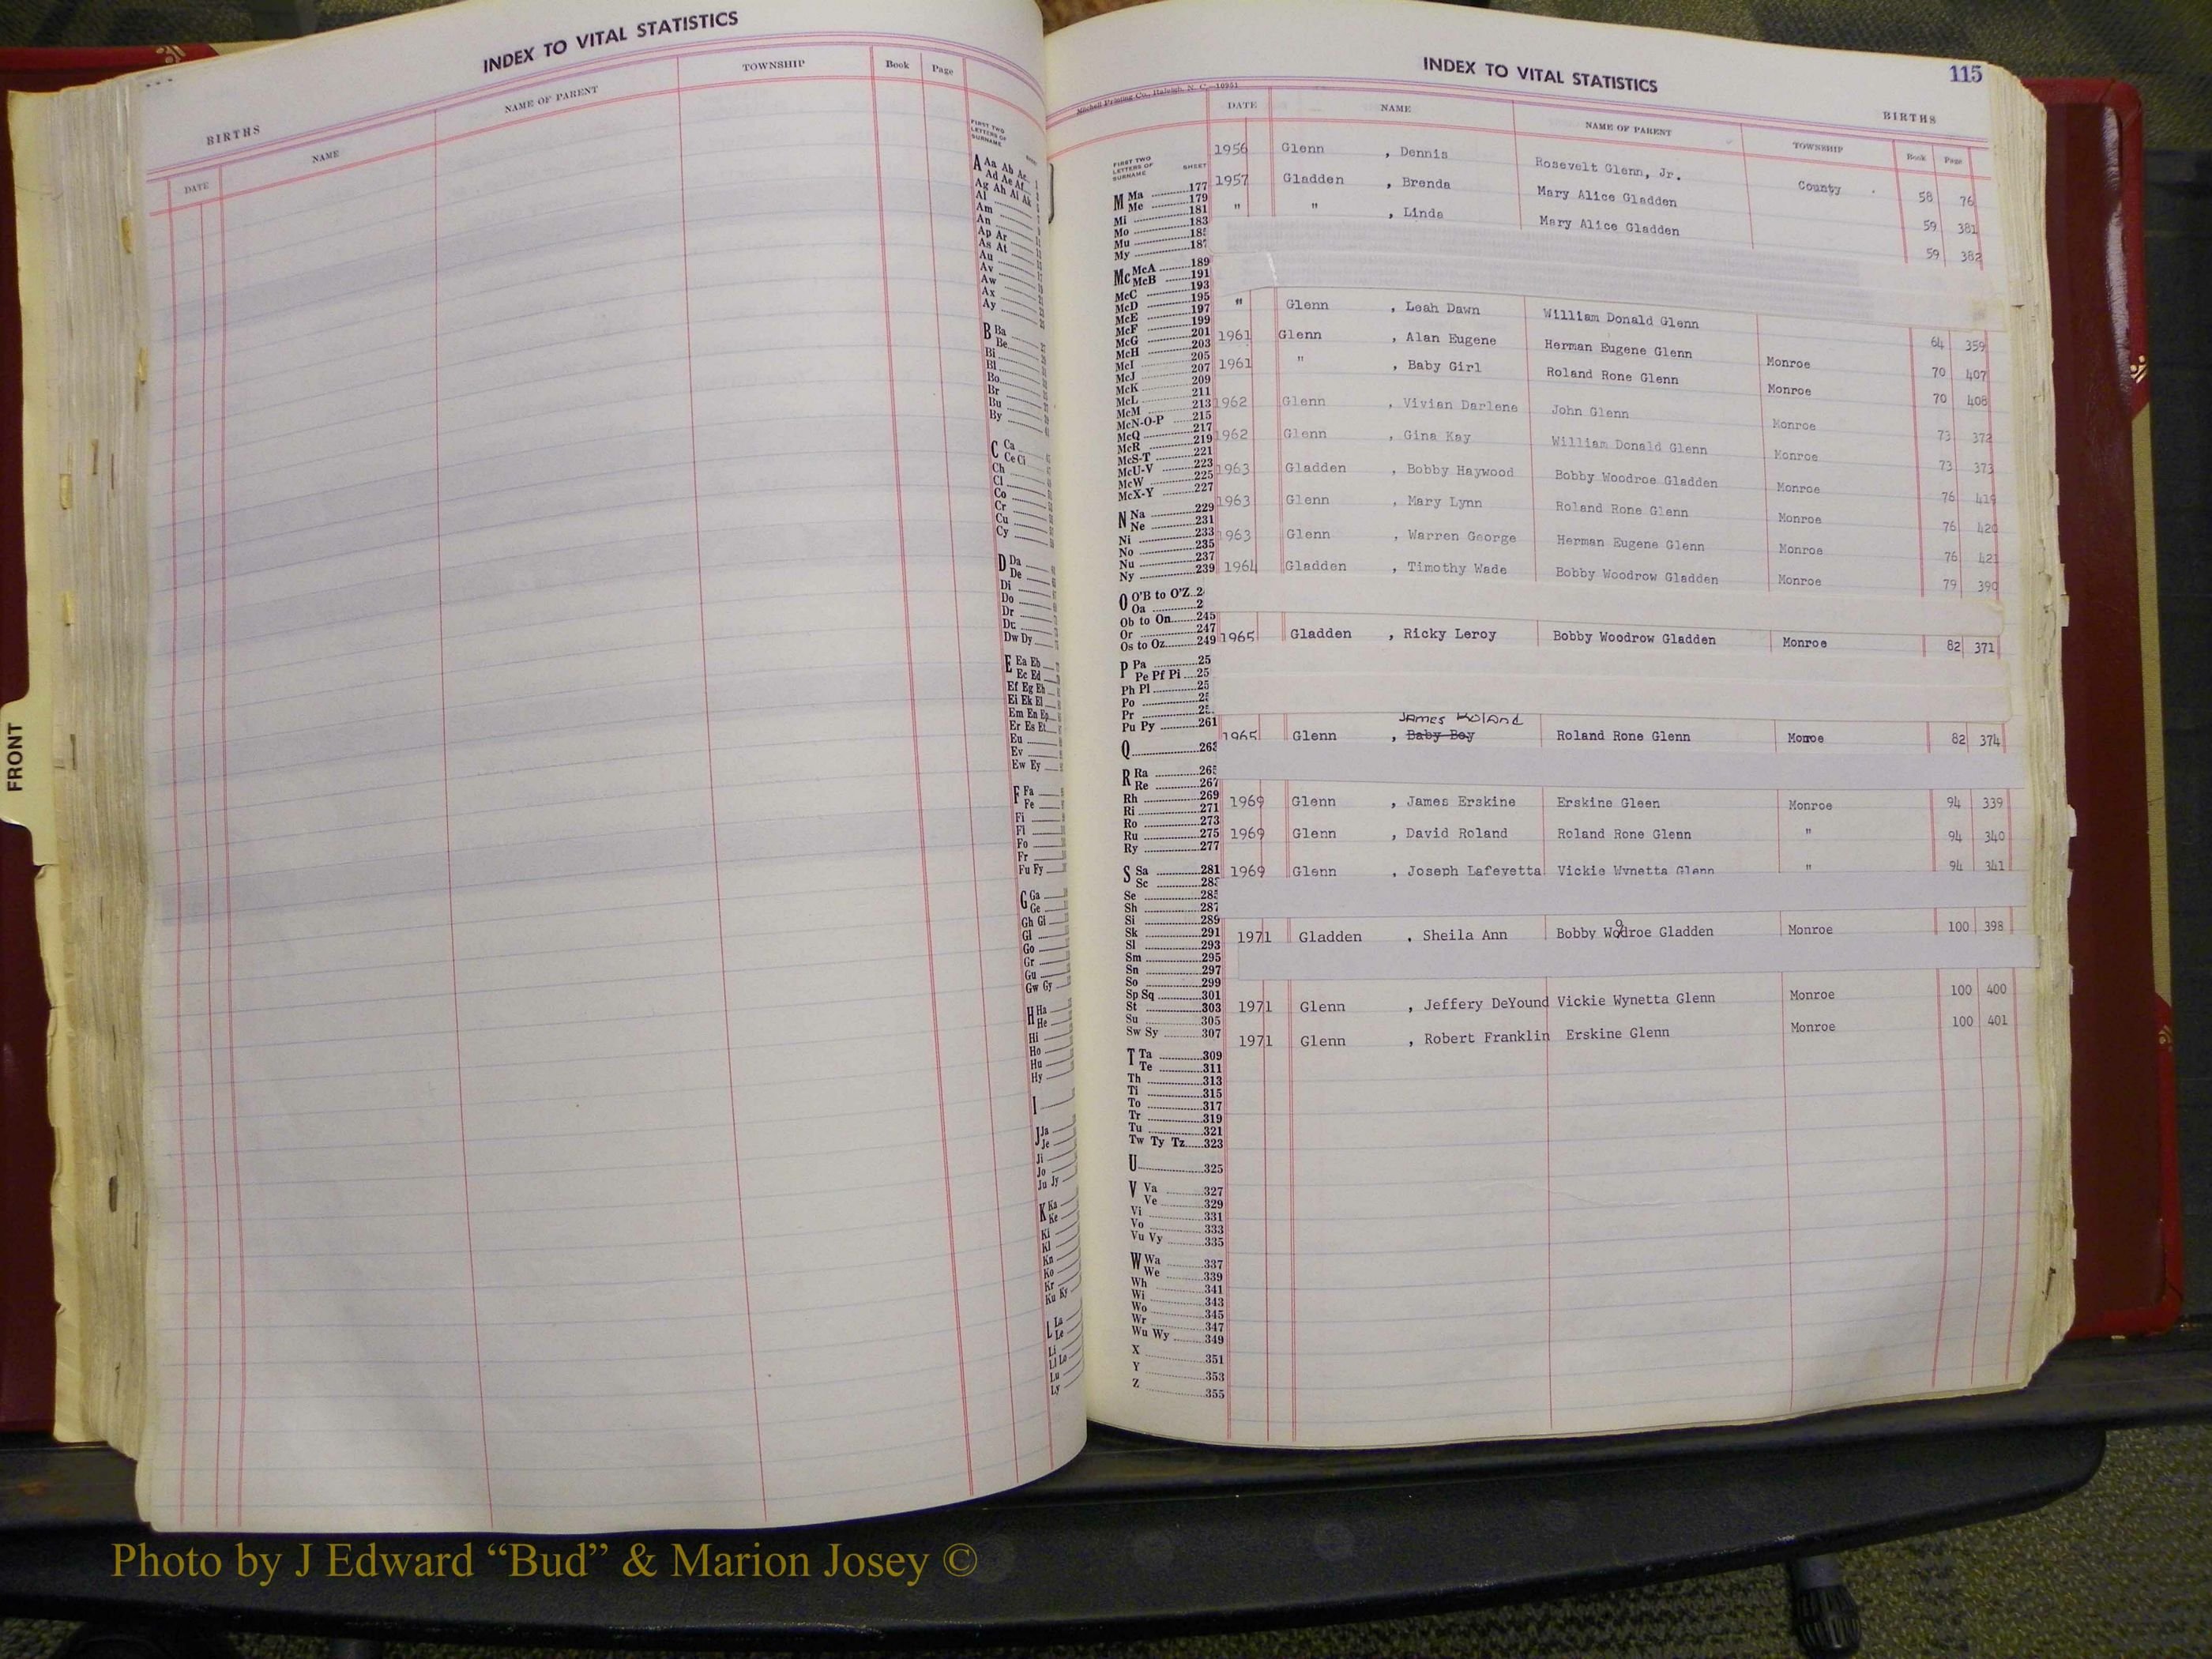 INDEX TO VITAL STATISTICS
BIRTHS
DATE NAME NAME OF PARENT TOWNSHIP Book Page
FIRST TWO
LETTERS OF
SURNAME
A Aa Ab Ac
Ad Ae Af
Ag Ah Ai Ak
Al
Am
An
Ap Ar
As At
Au
Av
Aw
Ax
Ay
B Ba
Be
Bi
Bl
Bo
Br
Bu
By
C Ca
Ce Ci
Ch
Cl
Co
Cr
Cu
Cy
D Da
De
Di
Do
Dr
Du
Dw Dy
E Ea Eb
Ec Ed
Ef Eg Eh
Ei Ek El
Em En Ep
Er Es Et
Eu
Ev
Ew Ey
F Fa
Fe
Fi
Fl
Fo
Fr
Fu Fy
G Ga
Ge
Gh Gi
Gl
Go
Gr
Gu
Gw Gy
H Ha
He
Hi
Ho
Hu
Hy
I
J Ja
Je
Ji
Jo
Ju Jy
K Ka
Ke
Ki
Kl
Kn
Ko
Kr
Ku Ky
L La
Le
Li
Ll Lo
Lu
Ly
FRONT
INDEX TO VITAL STATISTICS 115
Mitchell Printing Co., Raleigh, N. C.—10951
BIRTHS
DATE NAME NAME OF PARENT TOWNSHIP Book Page
FIRST TWO
LETTERS OF
SURNAME SHEET
M Ma 177
Me 179
Mi 181
Mo 183
Mu 185
My 187
Mc McA 189
McB 191
McC 193
McD 195
McE 197
McF 199
McG 201
McH 203
McI 205
McJ 207
McK 209
McL 211
McM 213
McN-O-P 215
McQ 217
McR 219
McS-T 221
McU-V 223
McW 225
McX-Y 227
N Na 229
Ne 231
Ni 233
No 235
Nu 237
Ny 239
O O'B to O'Z 2
Oa 2
Ob to On 245
Or 247
Os to Oz 249
P Pa 25
Pe Pf Pi 25
Ph Pl 25
Po 25
Pr 25
Pu Py 261
Q 263
R Ra 265
Re 267
Rh 269
Ri 271
Ro 273
Ru 275
Ry 277
S Sa 281
Sc 283
Se 285
Sh 287
Si 289
Sk 291
Sl 293
Sm 295
Sn 297
So 299
Sp Sq 301
St 303
Su 305
Sw Sy 307
T Ta 309
Te 311
Th 313
Ti 315
To 317
Tr 319
Tu 321
Tw Ty Tz 323
U 325
V Va 327
Ve 329
Vi 331
Vo 333
Vu Vy 335
W Wa 337
We 339
Wh 341
Wi 343
Wo 345
Wr 347
Wu Wy 349
X 351
Y 353
Z 355
1956 Glenn , Dennis Rosevelt Glenn, Jr. County 58 76
1957 Gladden , Brenda Mary Alice Gladden 59 381
" " , Linda Mary Alice Gladden 59 382
" Glenn , Leah Dawn William Donald Glenn 64 359
1961 Glenn , Alan Eugene Herman Eugene Glenn Monroe 70 407
1961 " , Baby Girl Roland Rone Glenn Monroe 70 408
1962 Glenn , Vivian Darlene John Glenn Monroe 73 372
1962 Glenn , Gina Kay William Donald Glenn Monroe 73 373
1963 Gladden , Bobby Haywood Bobby Woodroe Gladden Monroe 76 419
1963 Glenn , Mary Lynn Roland Rone Glenn Monroe 76 420
1963 Glenn , Warren George Herman Eugene Glenn Monroe 76 421
1964 Gladden , Timothy Wade Bobby Woodrow Gladden Monroe 79 390
1965 Gladden , Ricky Leroy Bobby Woodrow Gladden Monroe 82 371
James Roland
1965 Glenn , Baby Boy Roland Rone Glenn Monroe 82 374
1969 Glenn , James Erskine Erskine Gleen Monroe 94 339
1969 Glenn , David Roland Roland Rone Glenn " 94 340
1969 Glenn , Joseph Lafevetta Vickie Wynetta Glenn " 94 341
1971 Gladden , Sheila Ann Bobby Wodroe Gladden Monroe 100 398
1971 Glenn , Jeffery DeYound Vickie Wynetta Glenn Monroe 100 400
1971 Glenn , Robert Franklin Erskine Glenn Monroe 100 401
Photo by J Edward “Bud” & Marion Josey ©